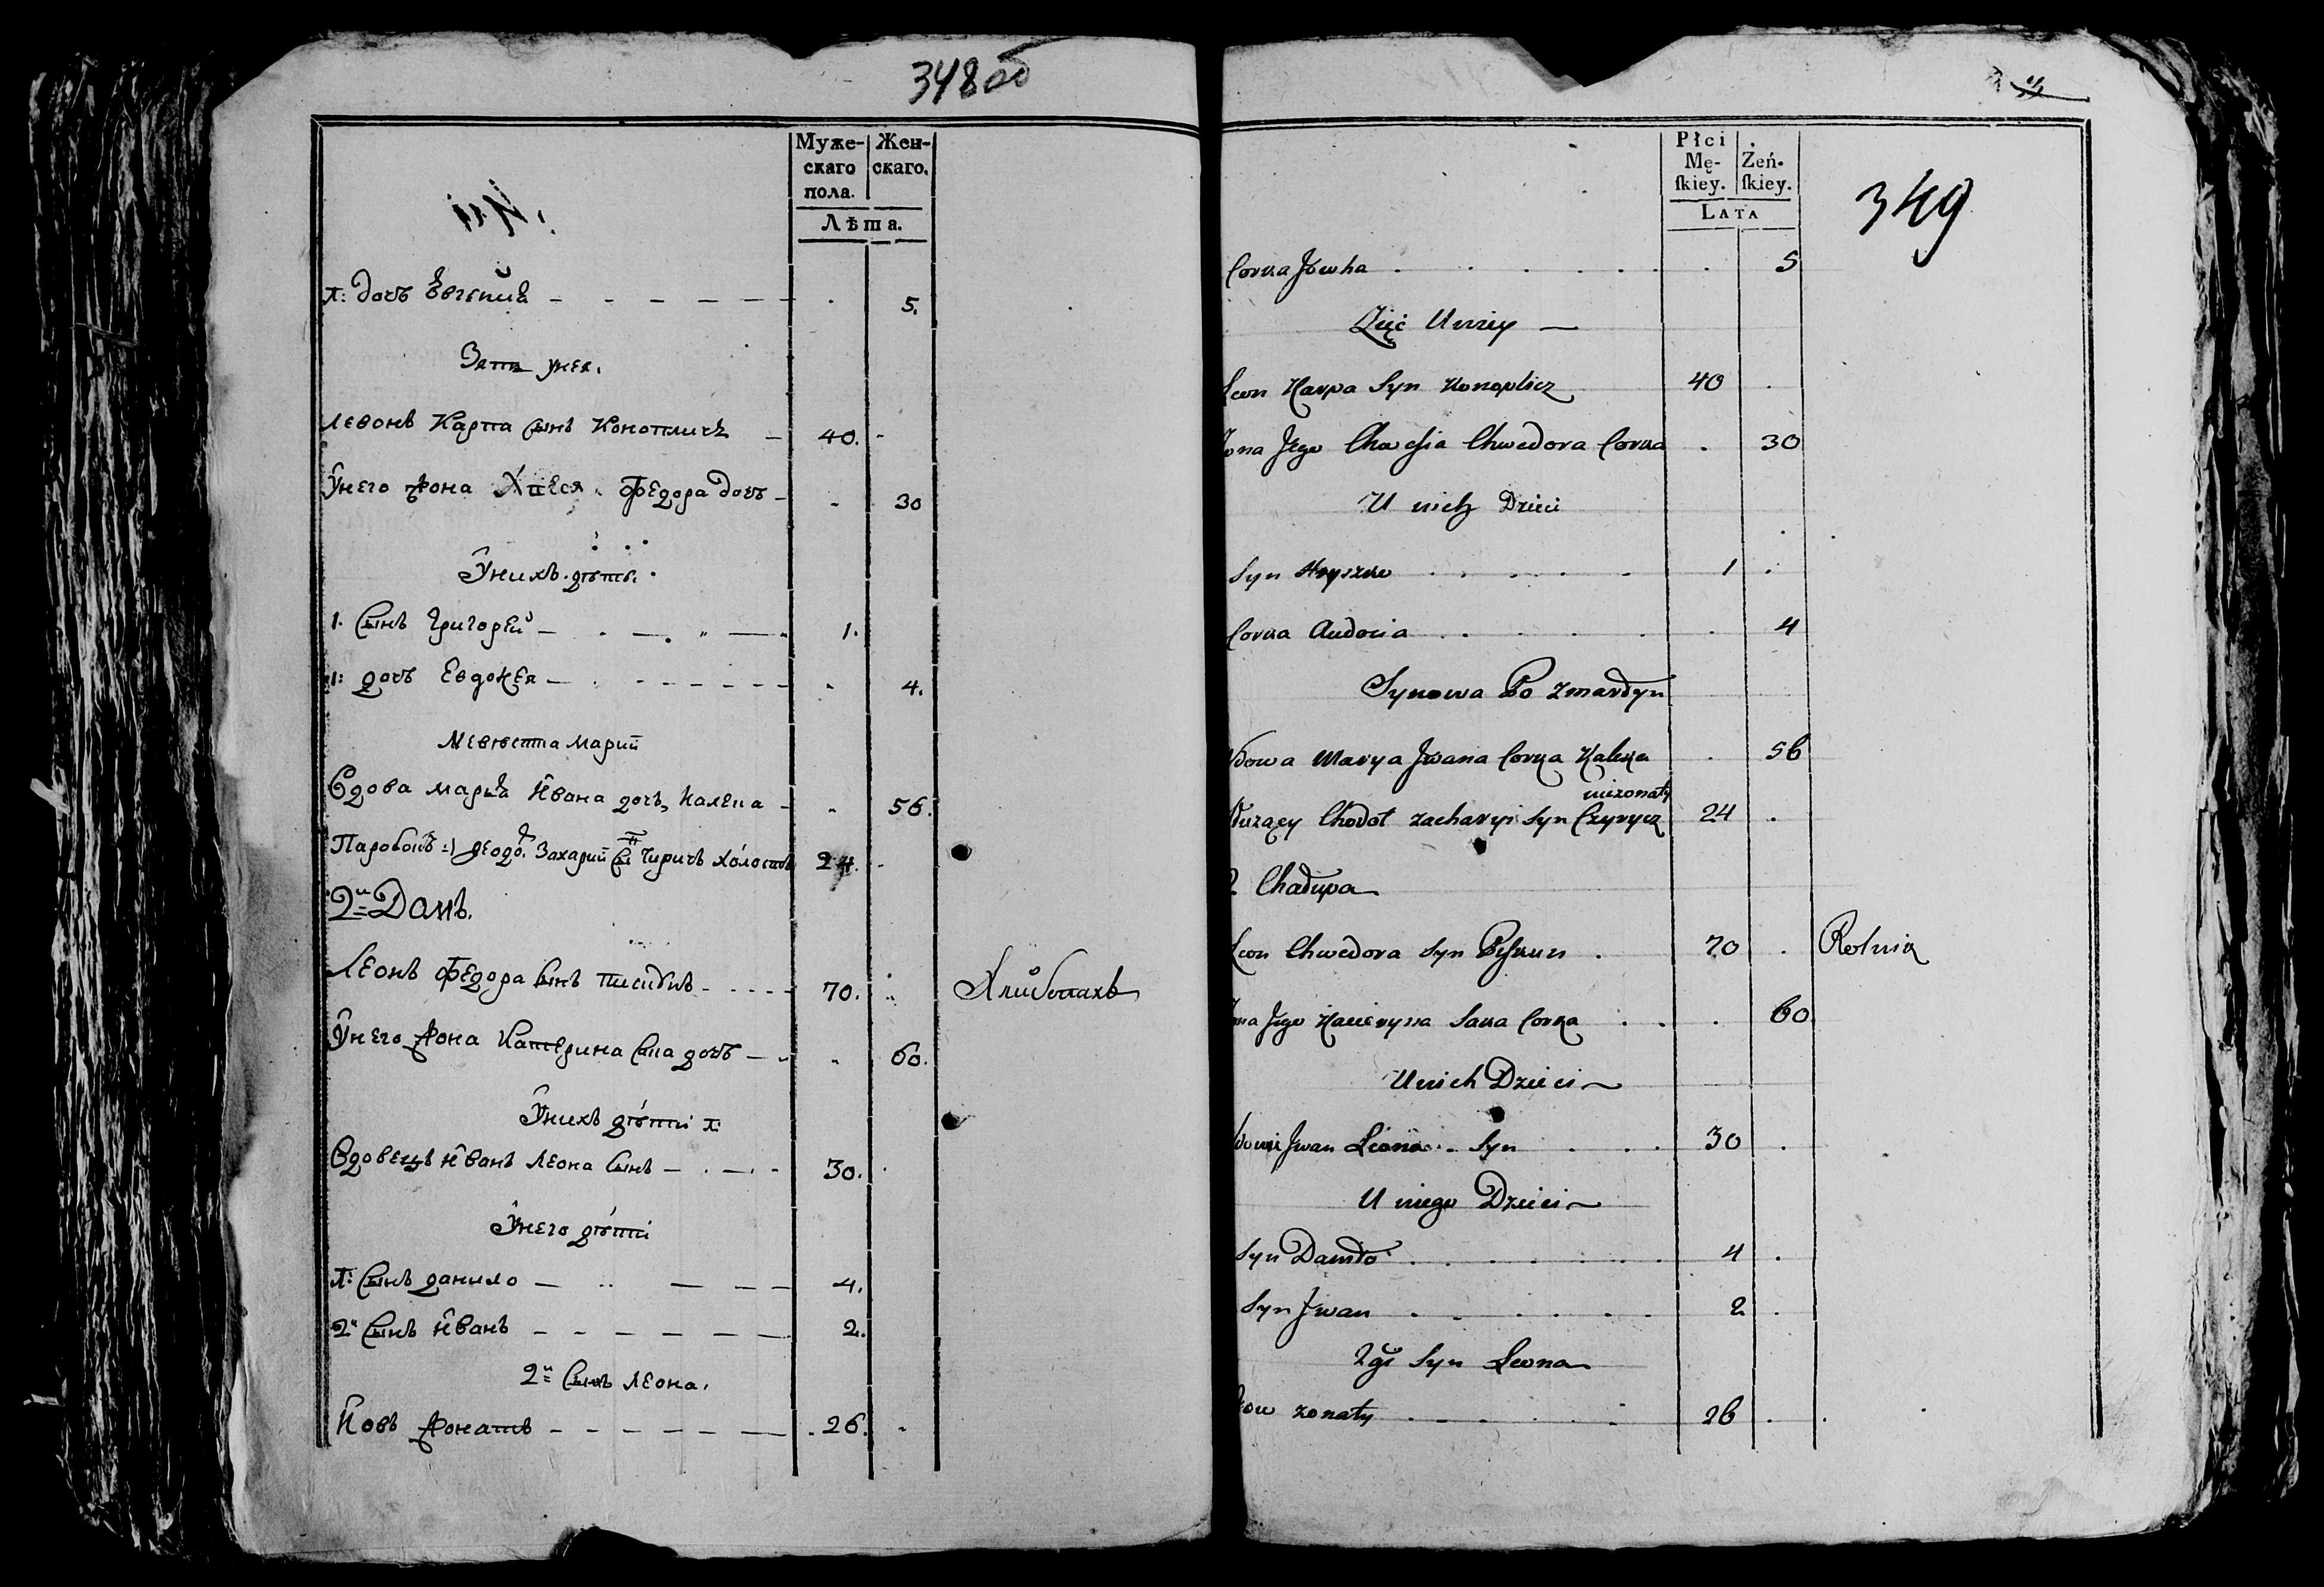 348 об
Муже-
скаго
пола.
Жен-
скаго.
Лѣта.
1: дочь Евгения 5.
Зять унея.
Левонъ Карпа сынъ Конопличъ 40.
Унего жона Хвеся Федора дочь 30
Унихъ дѣти.
1. Сынъ Григорей 1.
1: дочь Евдокея 4.
Невѣста
Вдова Марья Ивана дочь 56.
Паробокъ Захарий Чиричъ холостъ 24.
2й Домъ.
Леонъ Федора сынъ 70.
Унего жона Катерина дочь 60.
Унихъ дѣти
Вдовецъ Иванъ Леона сынъ 30.
Унего дѣти
1: Сынъ данило 4.
2й Сынъ Иванъ 2.
2й Сынъ Леона.
Иовъ жонатъ 26.
349
Płci
Mę-
ſkiey.
Żeń-
ſkiey.
LATA
Corka Jowha 5
Zięć Uniey
Leon Karpa Syn Konoplicz 40
Zona Jego Chwesia Chwedora Corka 30
U nich Dzieci
Syn Hryszko 1
Corka Audocia 4
Synowa Po zmardym
Wdowa Marya Jwana Corka 56
niezonaty
Służący Chodot zacharyi Syn Czyrycz 24
2 Chałupa
Leon Chwedora Syn 70 Rolnik
Zona Jego Kacieryna Corka 60
Unich Dzieci
Jwan Leona Syn 30
U niego Dzieci
Syn Daniło 4
Syn Jwan 2
2gi Syn Leona
zonaty 26